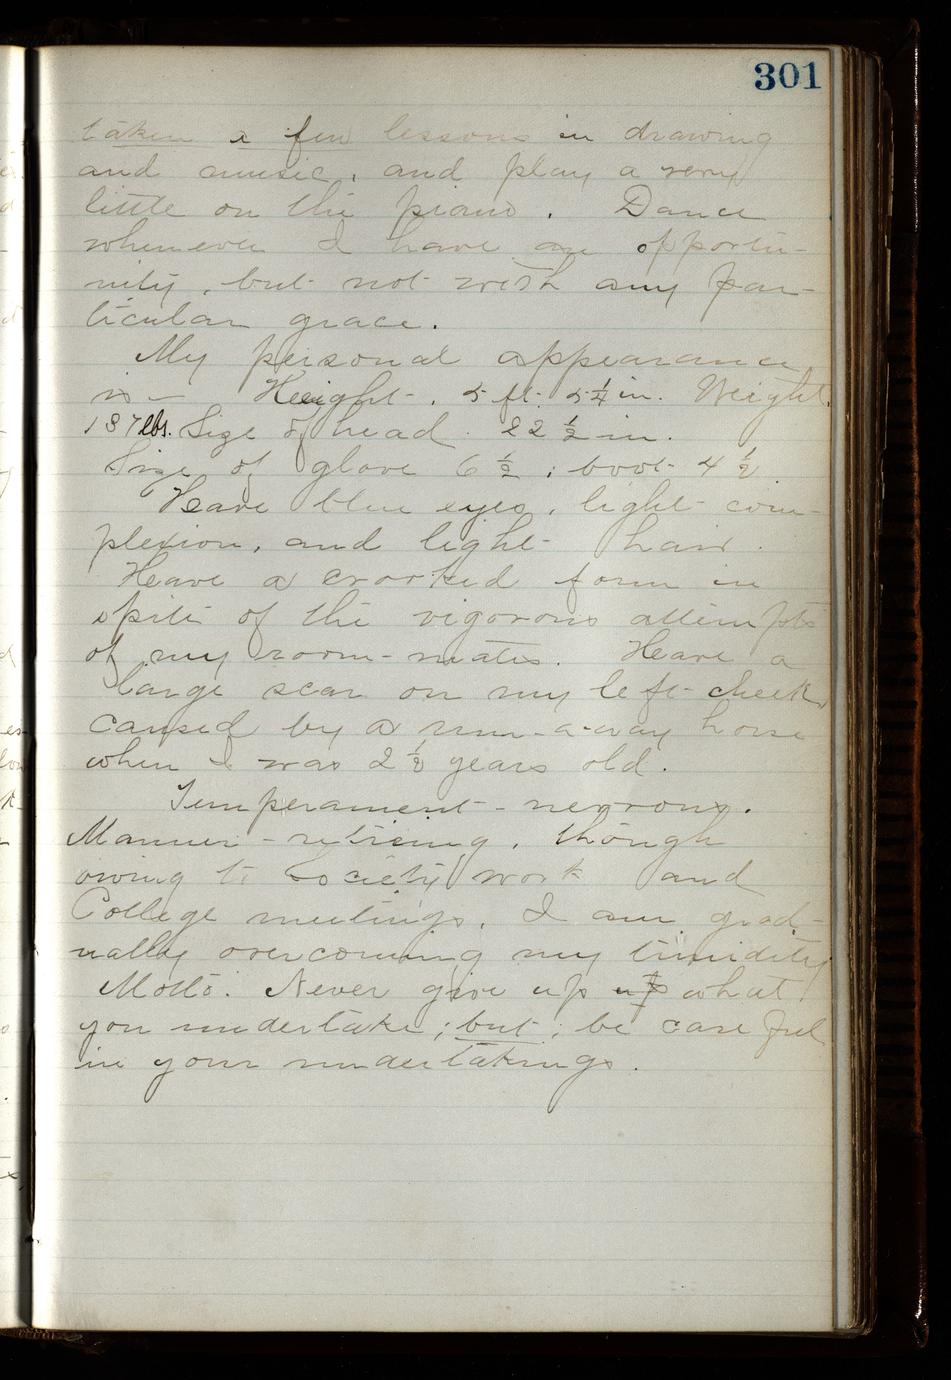 301
taken a few lessons in drawing
and music, and play a very
little on the piano. Dance
whenever I have an opportu-
nity, but not with any par-
ticular grace.
My personal appearance
is - Height, 5 ft. 5 1/4 in. Weight,
137 lbs. Size of head 22 1/2 in.
Size of glove 6 1/2; boot 4 1/2
Have blue eyes, light com-
plexion, and light hair.
Have a crooked form in
spite of the vigorous attempts
of my room-mates. Have a
large scar on my left cheek,
caused by a run-a-way horse
when I was 2 1/2 years old.
Temperament - negrous.
Manner - retiring, though
owing to Society work and
College meetings, I am grad-
ually overcoming my timidity
Motto. Never give up up what
you undertake; but; be careful
in your undertakings.